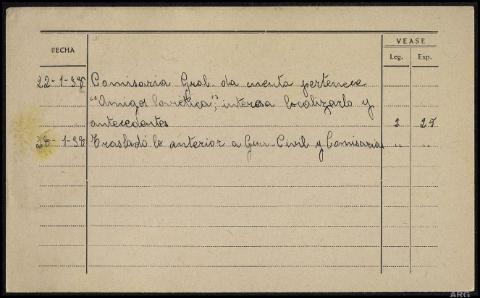 VEASE
FECHA Leg. Exp.
22-1-38 Comisaria Gral. da cuenta pertenece
"Amigos Sovietica", interesa localizarlo y
antecedentes 3 25
-1-38 Traslado lo anterior a Gen. Civil y Comisaria " "
ARG